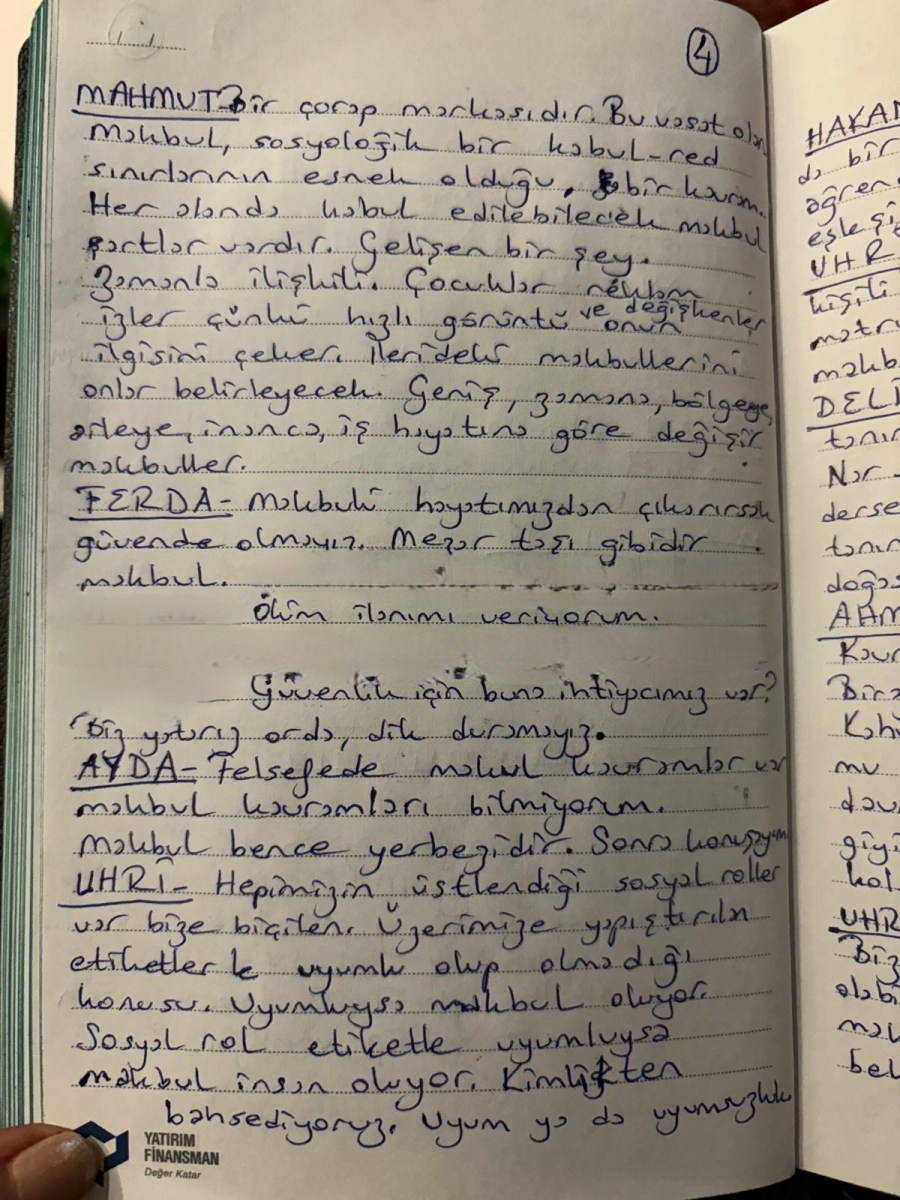 4
MAHMUT- Bir çorap markasıdır. Bu vasat olan
makbul, sosyoloğik bir kabul-red
sınırlarının esnek olduğu, bir kavram.
Her alanda kabul edilebilecek makbul
şartlar vardır. Gelişen bir şey.
Zamanla ilişkili. Çocuklar reklam
izler çünkü hızlı görüntü ve değişkenler onun
ilgisini çeker. İlerideki makbullerini
onlar belirleyecek. Geniş, zamana, bölgeye,
aileye, inanca, iş hayatına göre değişir
makbuller.
FERDA- Makbulü hayatımızdan çıkarırsak
güvende olmayız. Mezar taşı gibidir
makbul.
Ölüm ilanımı veriyorum.
Güvenlik için buna ihtiyacımız var?
Biz yatarız orda, dik duramayız.
AYDA- Felsefede makul kavramlar var
makbul kavramları bilmiyorum.
Makbul bence yerbezidir. Sonra konuşayım
UHRİ- Hepimizin üstlendiği sosyal roller
var bize biçilen. Üzerimize yapıştırılan
etiketlerle uyumlu olup olmadığı
konusu. Uyumluysa makbul oluyor.
Sosyal rol etiketle uyumluysa
makbul insan oluyor. Kimlikten
bahsediyoruz. Uyum ya da uyumsuzluk
YATIRIM
FİNANSMAN
Değer Katar
HAKAN
da bir
öğren
eşleşi
UHR
kişili
matru
makb
DELİ
tanır
Nar
derse
tanın
doğas
AHM
Kavr
Bira
Kahi
mu
dav
giyi
kol
UHR
Biz
olabi
mak
bel